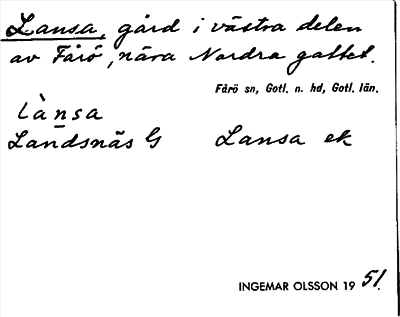 Lansa, gård i västra delen
av Fårö, nära Nordra gattet.
Fårö sn, Gotl. n. hd, Gotl. län.
Lànsa
Landsnäs G Lansa ek
INGEMAR OLSSON 19 51.